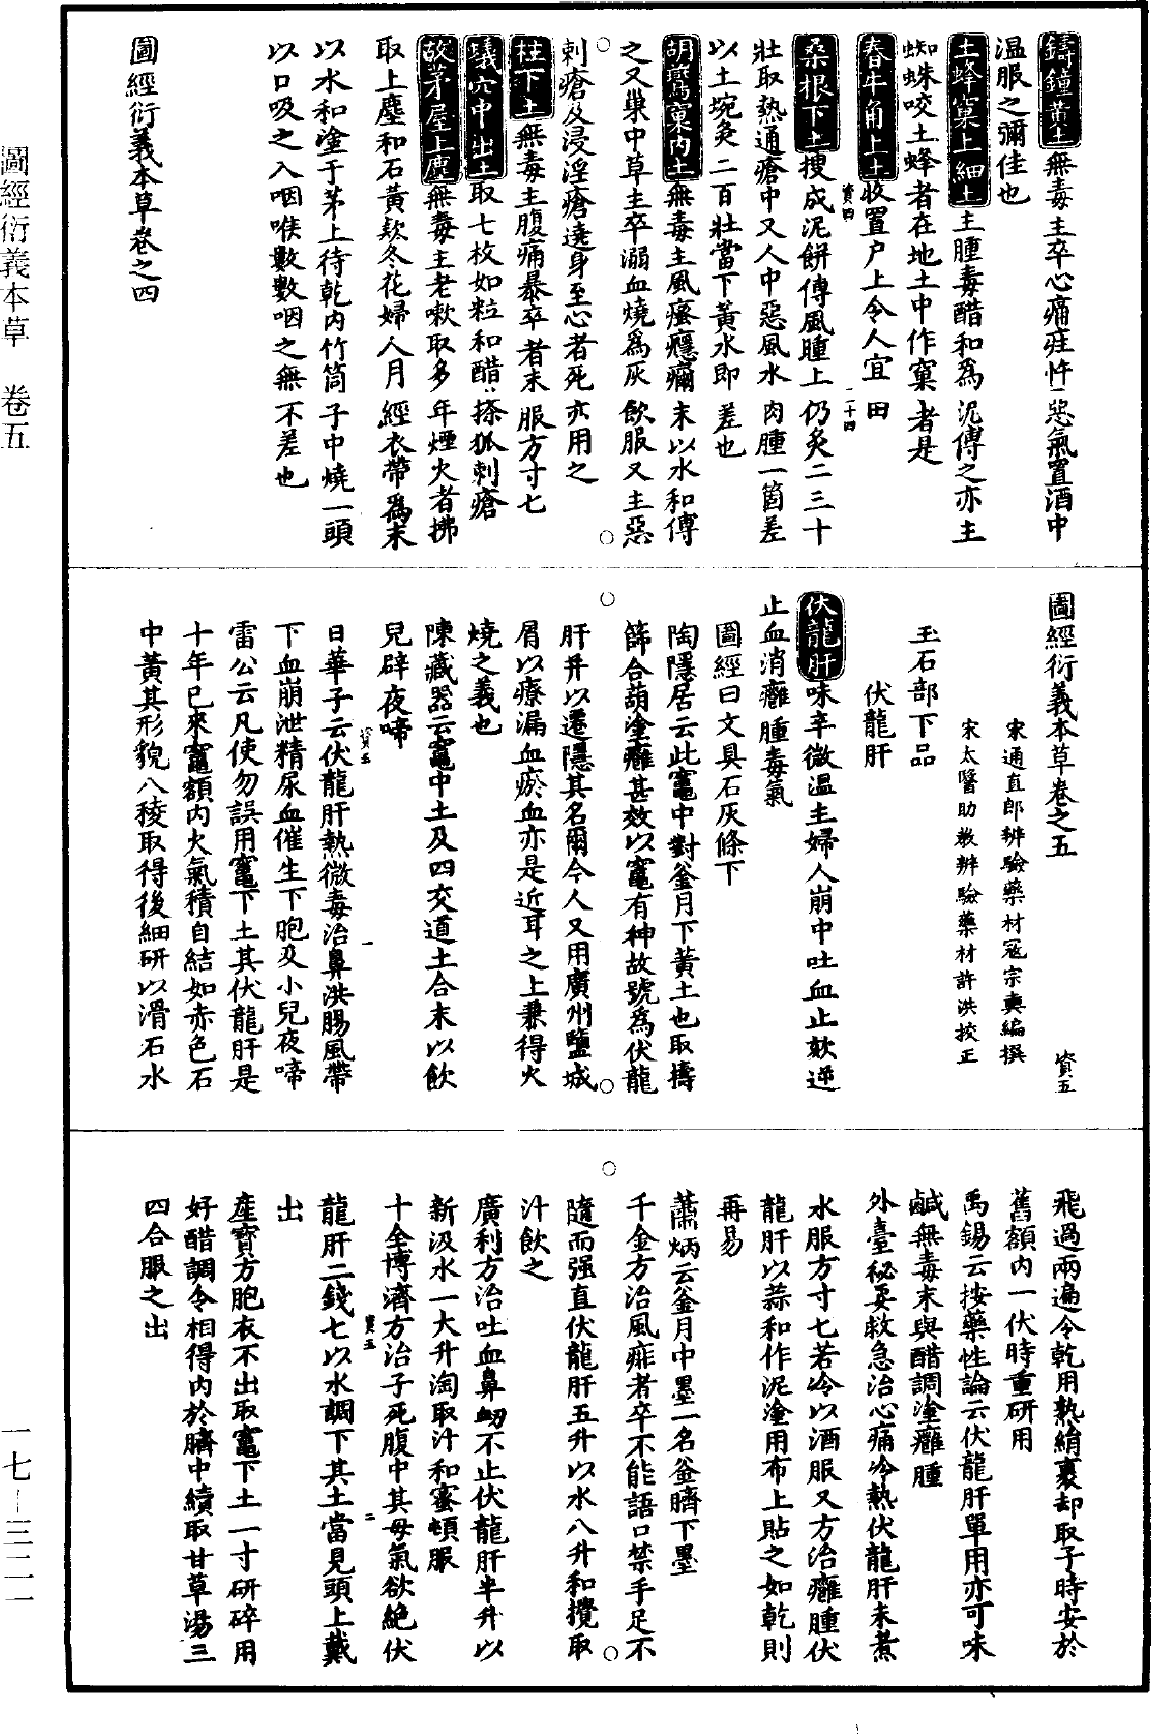 鑄鐘黃土無毒主卒心痛疰忤惡氣置酒中
温服之彌佳也
土蜂窠上細土主腫毒醋和爲泥傅之亦主
蜘蛛咬土蜂者在地土中作窠者是
春牛角上土收置户上令人宜田
資四
二十四
桑根下土搜成泥餅傅風腫上仍炙二三十
壯取熱通瘡中又人中惡風水肉腫一箇差
以土埦炙二百壯當下黃水即差也
胡鷰窠内土無毒主風瘙癮㾦末以水和傅
之又巢中草主卒溺血燒爲灰飲服又主惡
刺瘡及浸淫瘡遶身至心者死亦用之
柱下土無毒主腹痛暴卒者末服方寸七
蟻穴中出土取七枚如粒和醋搽狐刺瘡
故茅屋上塵無毒主老嗽取多年煙火者拂
取上塵和石黃欵冬花婦人月經衣帶爲末
以水和塗于茅上待乾内竹筒子中燒一頭
以口吸之入咽喉數數咽之無不差也
圖經衍義本草卷之四
圖經衍義本草卷之五
資五
宋通直郎辨驗藥材寇宗奭編撰
宋太醫助教辨驗藥材許洪挍正
玉石部下品
伏龍肝
伏龍肝味辛微温主婦人崩中吐血止欬逆
止血消癰腫毒氣
圖經曰文具石灰條下
陶隱居云此竈中對釜月下黃土也取擣
篩合葫塗癰甚效以竈有神故號爲伏龍
肝并以遷隱其名爾今人又用廣州鹽城
屑以療漏血瘀血亦是近耳之上兼得火
燒之義也
陳藏器云竈中土及四交道土合末以飲
兒辟夜啼
資五
一
日華子云伏龍肝熱微毒治鼻洪腸風帶
下血崩泄精尿血催生下胞及小兒夜啼
雷公云凡使勿誤用竈下土其伏龍肝是
十年已來竈額内火氣積自結如赤色石
中黃其形貌八稜取得後細研以滑石水
飛過兩遍令乾用熟絹裹却取子時安於
舊額内一伏時重研用
禹錫云按藥性論云伏龍肝單用亦可味
鹹無毒末與醋調塗癰腫
外臺秘要救急治心痛冷熱伏龍肝末煮
水服方寸七若冷以酒服又方治癰腫伏
龍肝以蒜和作泥塗用布上貼之如乾則
再易
蕭炳云釜月中墨一名釜臍下墨
千金方治風痱者卒不能語口禁手足不
隨而强直伏龍肝五升以水八升和攪取
汁飲之
廣利方治吐血鼻衂不止伏龍肝半升以
新汲水一大升淘取汁和蜜頓服
十全博濟方治子死腹中其母氣欲絶伏
資五
二
龍肝二錢七以水調下其土當見頭上戴
出
產寶方胞衣不出取竈下土一寸研碎用
好醋調令相得内於臍中續取甘草湯三
四合服之出
圖經衍義本草　卷五
一七—三二一